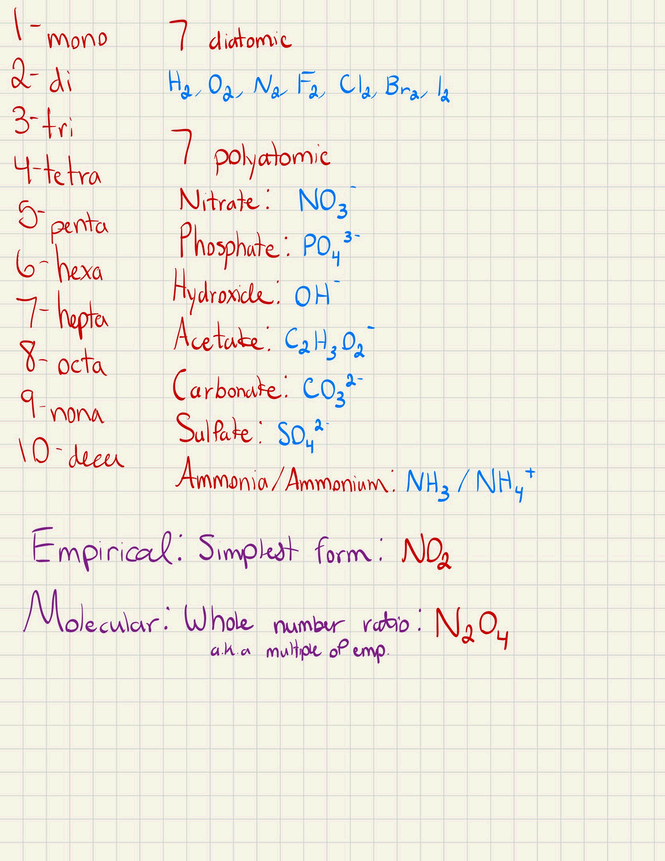 1-mono
2-di
3-tri
4-tetra
5-penta
6-hexa
7-hepta
8-octa
9-nona
10-deca
7 diatomic
H₂, O₂, N₂ F₂, Cl₂, Br₂, I₂
7 polyatomic
Nitrate: NO₃⁻
Phosphate: PO₄³⁻
Hydroxide: OH⁻
Acetate: C₂H₃O₂⁻
Carbonate: CO₃²⁻
Sulfate: SO₄²⁻
Ammonia/Ammonium: NH₃ / NH₄⁺
Empirical: Simplest form: NO₂
Molecular: Whole number ratio: N₂O₄
a.k.a multiple of emp.